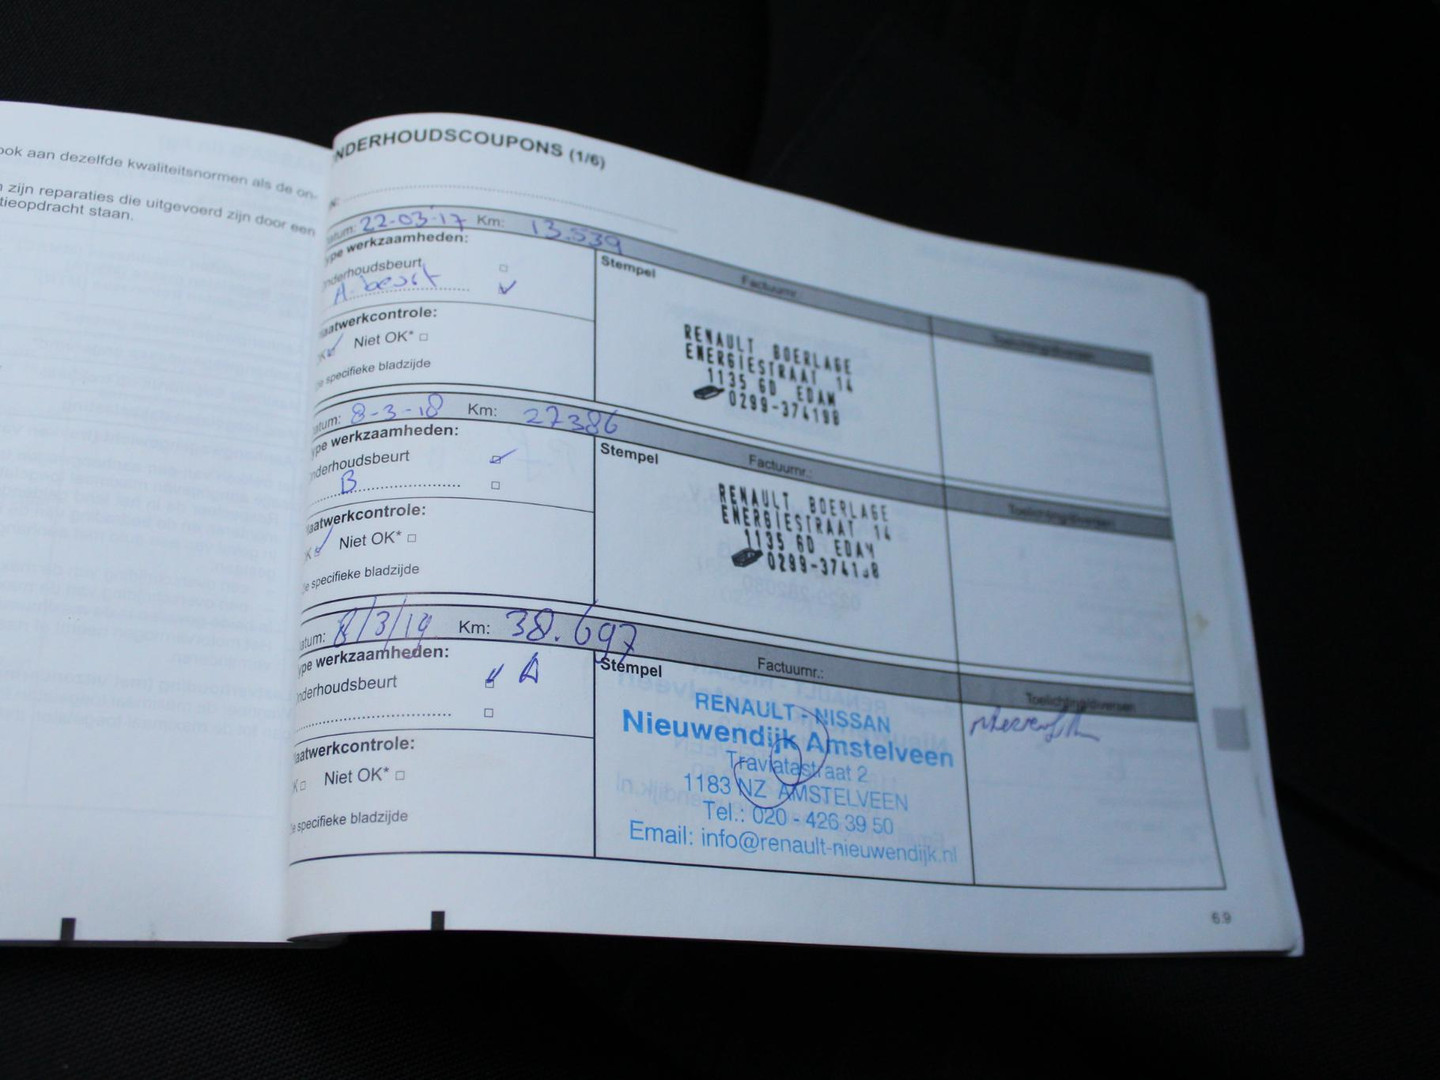 ook aan dezelfde kwaliteitsnormen als de on-
zijn reparaties die uitgevoerd zijn door een
tieopdracht staan.
NDERHOUDSCOUPONS (1/6)
atum: 22-03-17 Km: 13.539
ype werkzaamheden:
nderhoudsbeurt □
A. beurt
Stempel
Factuurnr.:
aatwerkcontrole:
K Niet OK* □
e specifieke bladzijde
RENAULT BOERLAGE
ENERGIESTRAAT 14
1135 GD EDAM
0299-374198
atum: 8-3-18 Km: 27386
ype werkzaamheden:
nderhoudsbeurt
B □
Stempel
Factuurnr.:
Toelichting/diversen
aatwerkcontrole:
K Niet OK* □
e specifieke bladzijde
RENAULT BOERLAGE
ENERGIESTRAAT 14
1135 GD EDAM
0299-374198
atum: 8/3/19 Km: 38.697
ype werkzaamheden:
nderhoudsbeurt A
□
Stempel
Factuurnr.:
Toelichting/diversen
aatwerkcontrole:
K □ Niet OK* □
e specifieke bladzijde
RENAULT - NISSAN
Nieuwendijk Amstelveen
Traviatastraat 2
1183 NZ AMSTELVEEN
Tel.: 020 - 426 39 50
Email: info@renault-nieuwendijk.nl
6.9